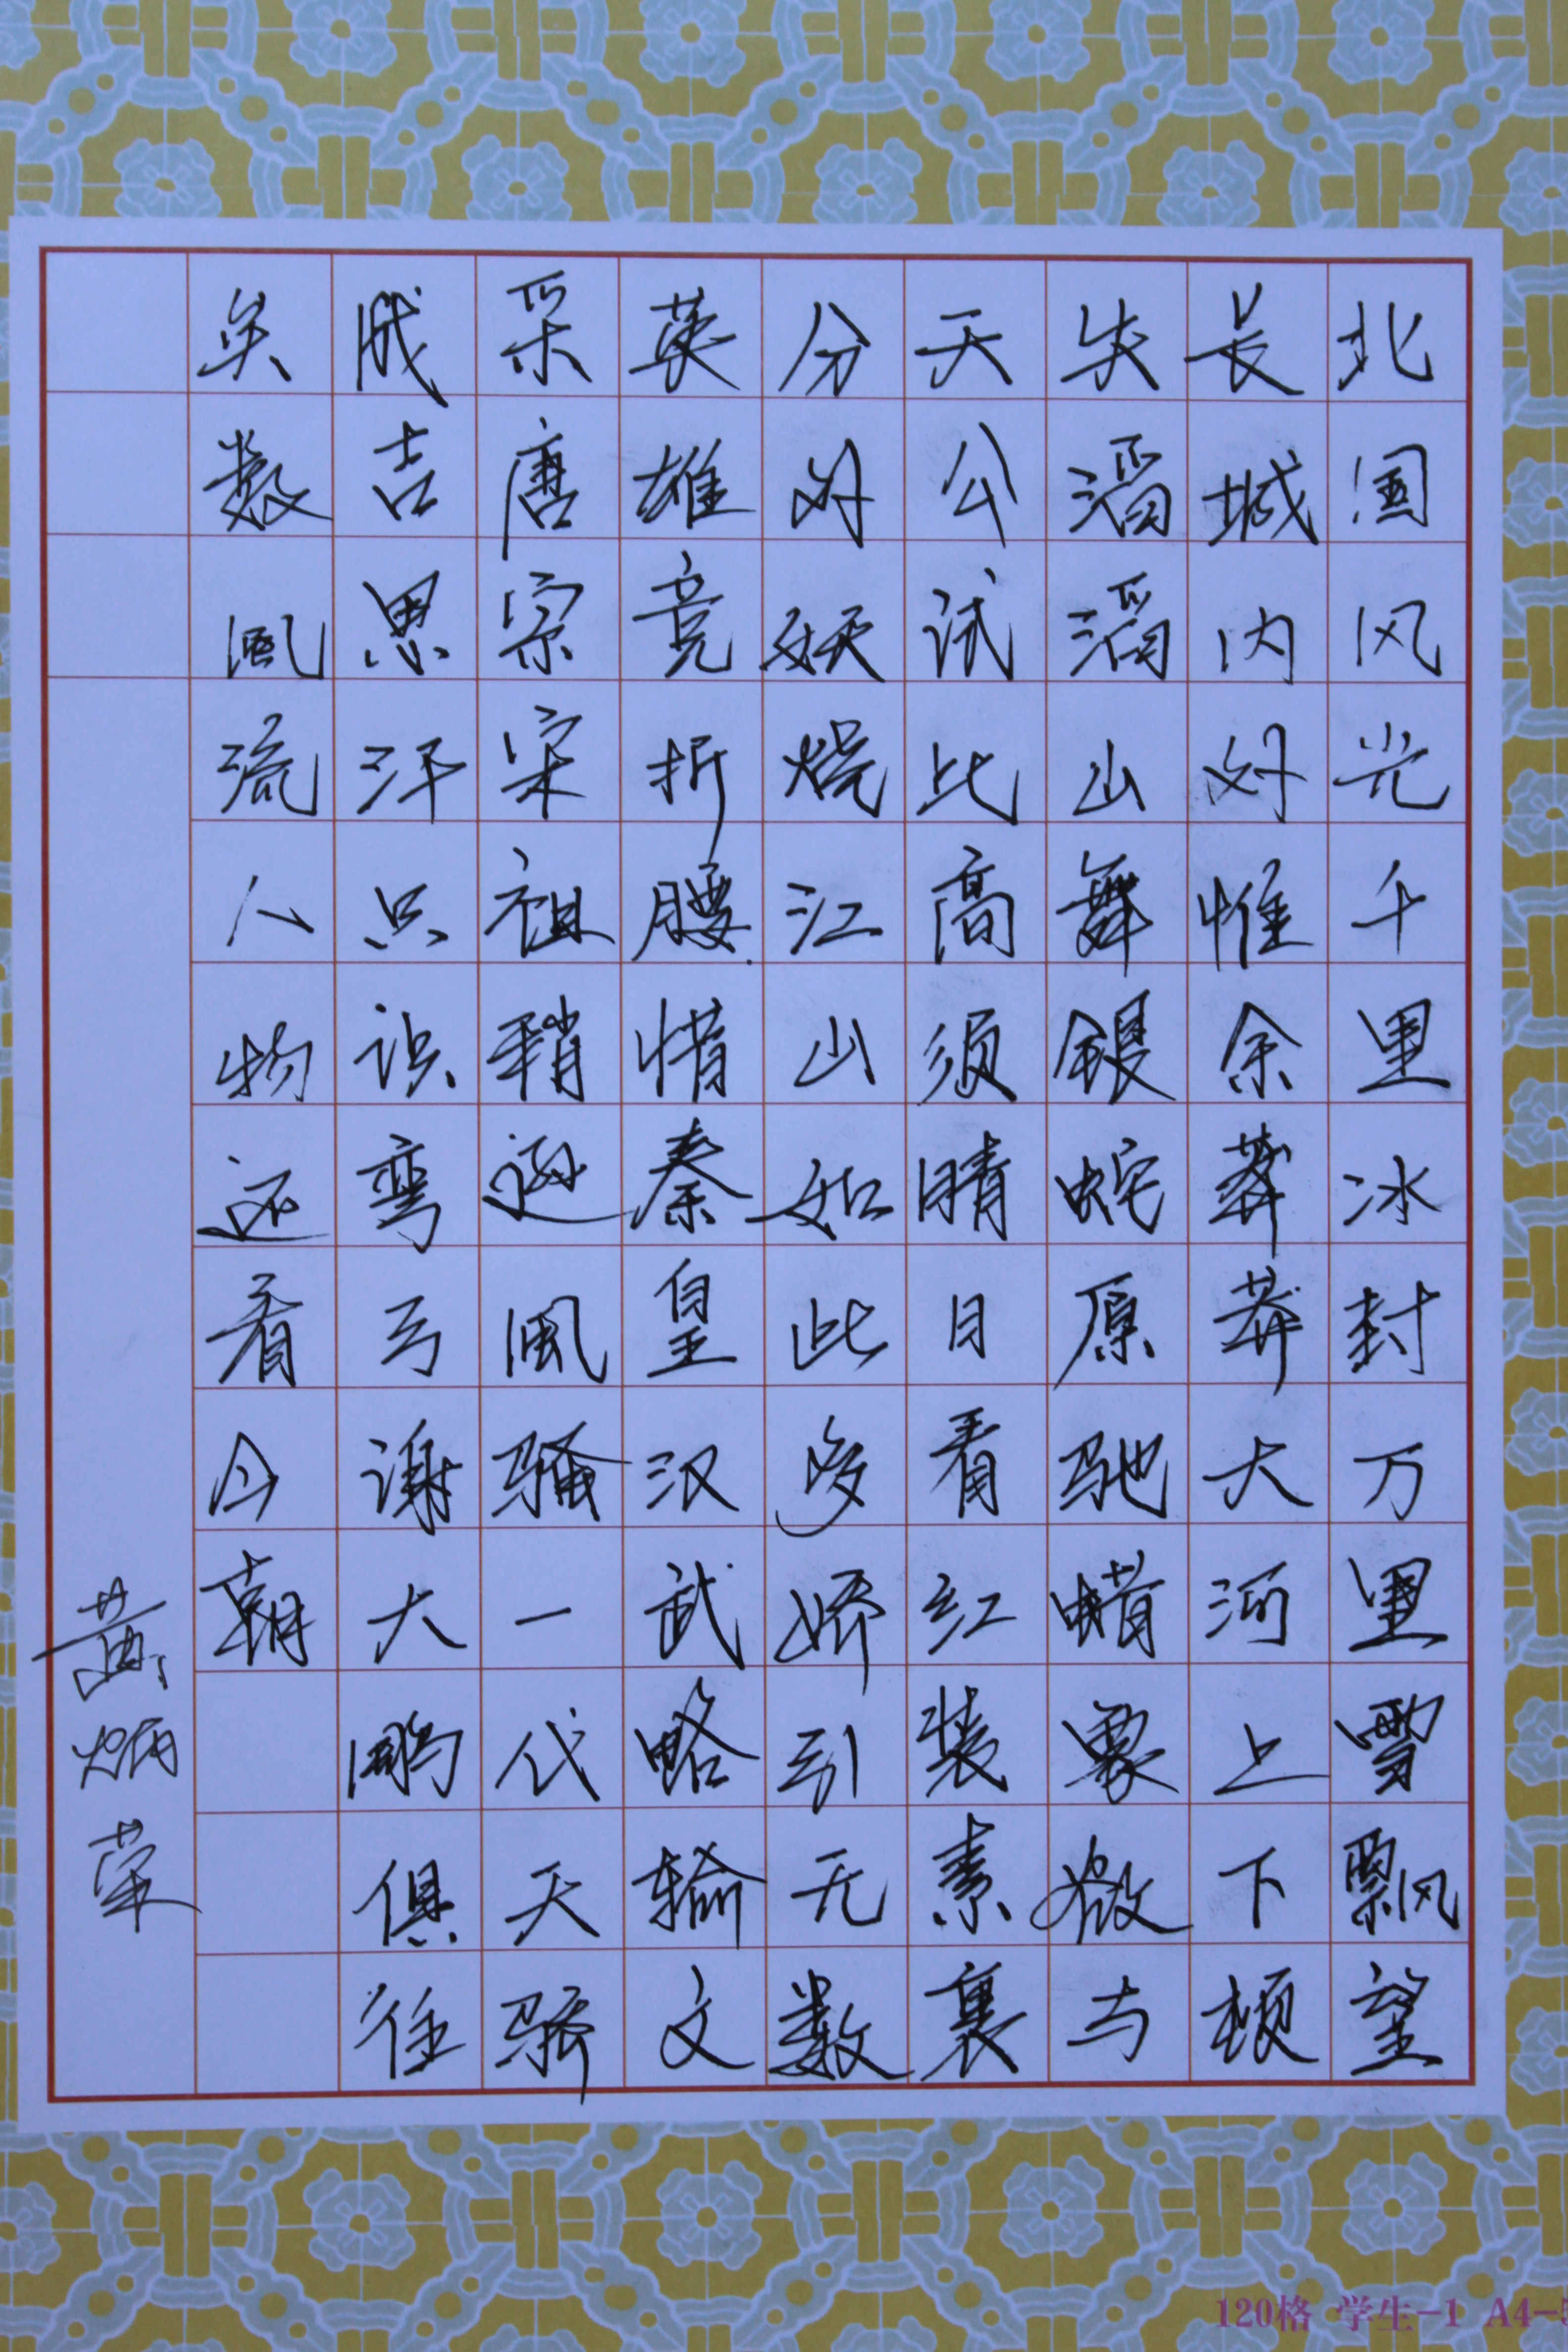 北国风光千里冰封万里雪飘望
长城内外惟余莽莽大河上下顿
失滔滔山舞银蛇原驰蜡象欲与
天公试比高须晴日看红装素裹
分外妖烧江山如此多娇引无数
英雄竞折腰惜秦皇汉武略输文
采唐宗宋祖稍逊風骚一代天骄
成吉思汗只识弯弓谢大鹏俱往
矣数風流人物还看今朝
黄炳荣
120格 学生-1 A4-5